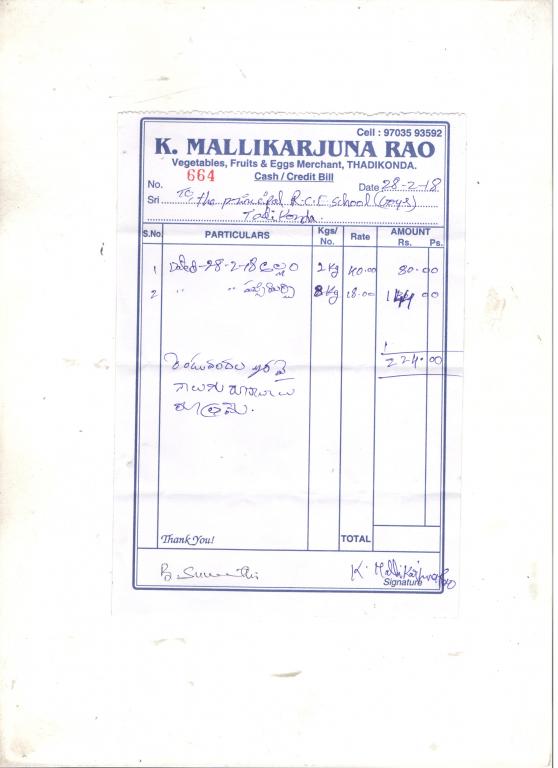 Cell : 97035 93592
K. MALLIKARJUNA RAO
Vegetables, Fruits & Eggs Merchant, THADIKONDA.
Cash / Credit Bill
No. 664 Date 28-2-18
Sri To, the principal A.P.R. School (Boys)
Tadikonda.
S.No. PARTICULARS Kgs/ No. Rate AMOUNT Rs. Ps.
1 Dated-28-2-18 అల్లం 2 Kg 40.00 80.00
2 " " పచ్చిమిర్చి 8 Kg 18.00 144 00
224.00
రెండువందల ఇరవై
నాలుగు రూపాయలు
మాత్రమే.
Thank You! TOTAL
K. Mallikarjuna Rao
Signature